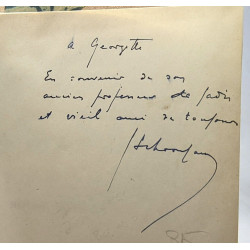 à Georgette
En souvenir de son
ancien professeur de jadis
et vieil ami de toujours